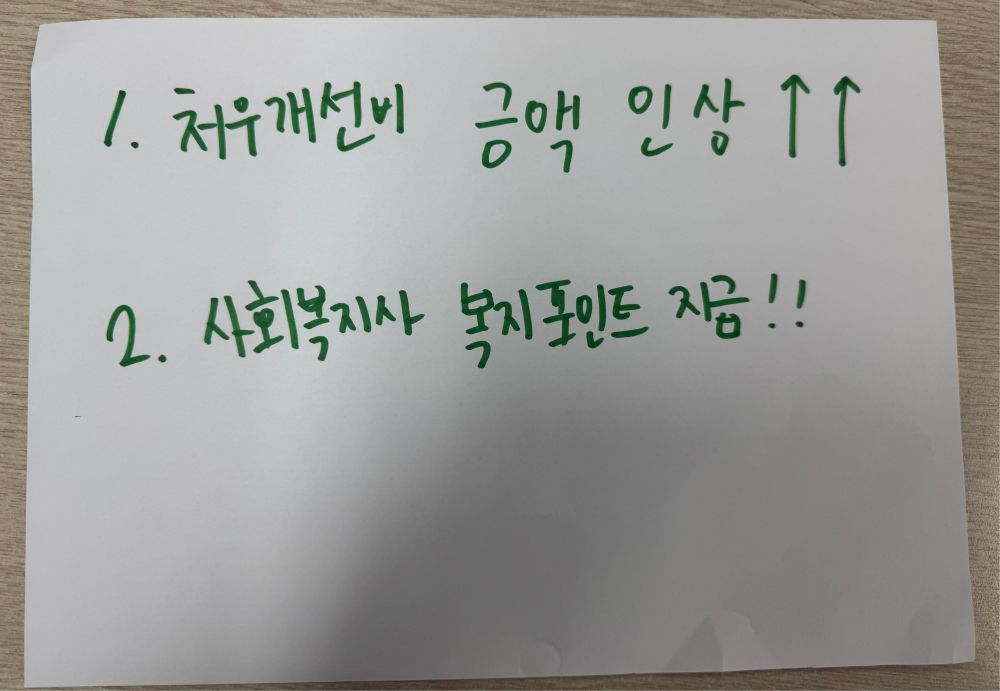 1. 처우개선비 금액 인상 ↑↑
2. 사회복지사 복지포인트 지급!!